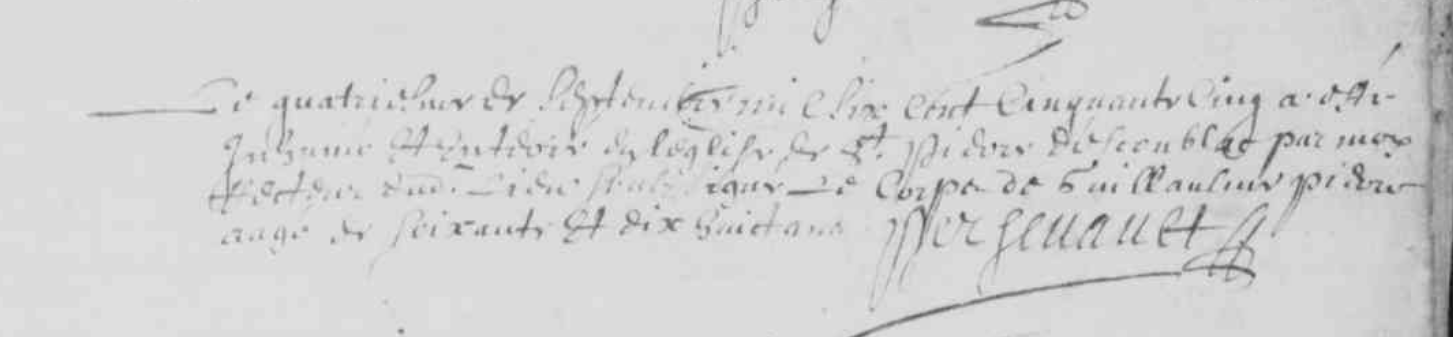 Le quatriesme de Septembre mil six cent cinquante cinq a esté
Inhumé et enterré en leglise de St Pierre descoublac par moy
Recteur dud. Lieu soubsigné Le Corps de Guillaulme pierre
aagé de soixante et dix huict ans